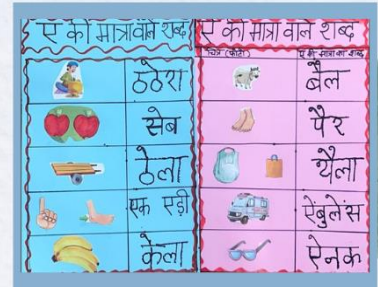 ए की मात्रा वाले शब्द
ठठेरा
सेब
ठेला
एक एड़ी
केला
ऐ की मात्रा वाले शब्द
चित्र (फोटो)
ऐ की मात्रा का शब्द
बैल
पैर
थैला
ऐंबुलेंस
ऐनक